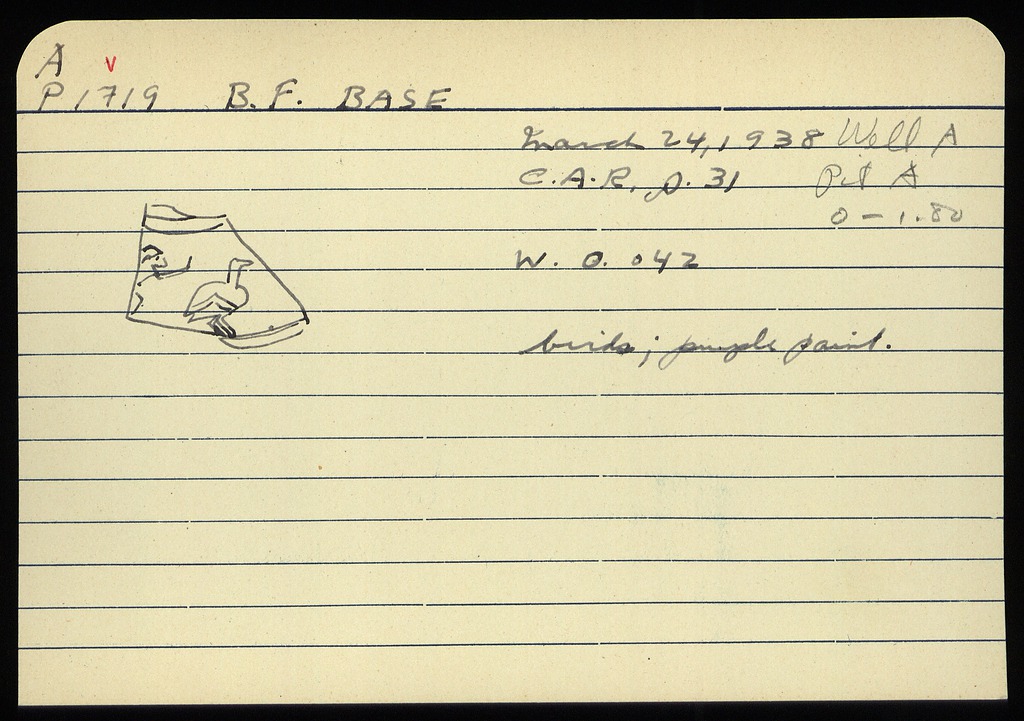 A v
P 1719 B.F. BASE
March 24, 1938 Well A
C.A.R. p. 31 Pit A
0 - 1.80
W. O. 042
birds; purple paint.